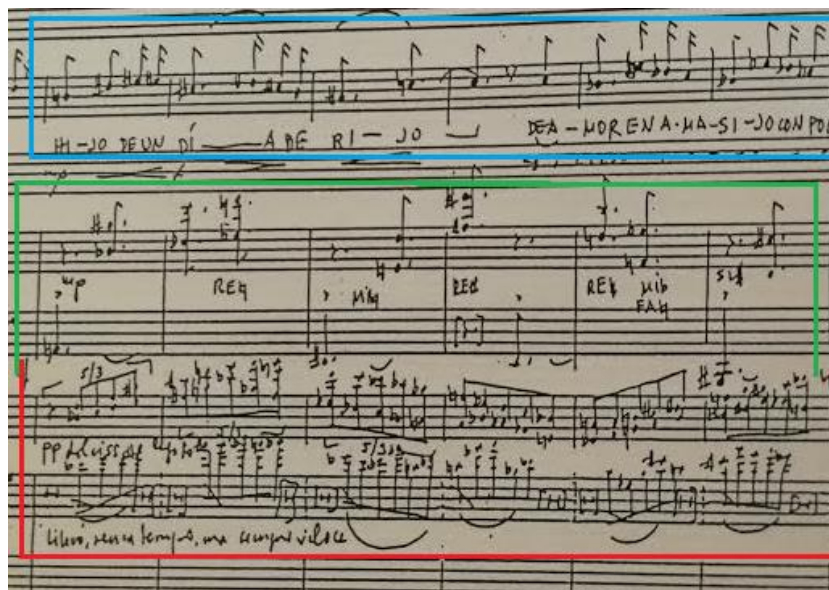 HI-JO DE UN DÍ — A DE RI — JO DE A-MORENA·MA-SI-JO CON POR
mp
RE♮ MI♮ RE♮ RE♮ MI♭
FA♮
5/3
pp dolciss.
5/3
libero, senza tempo, ma sempre veloce